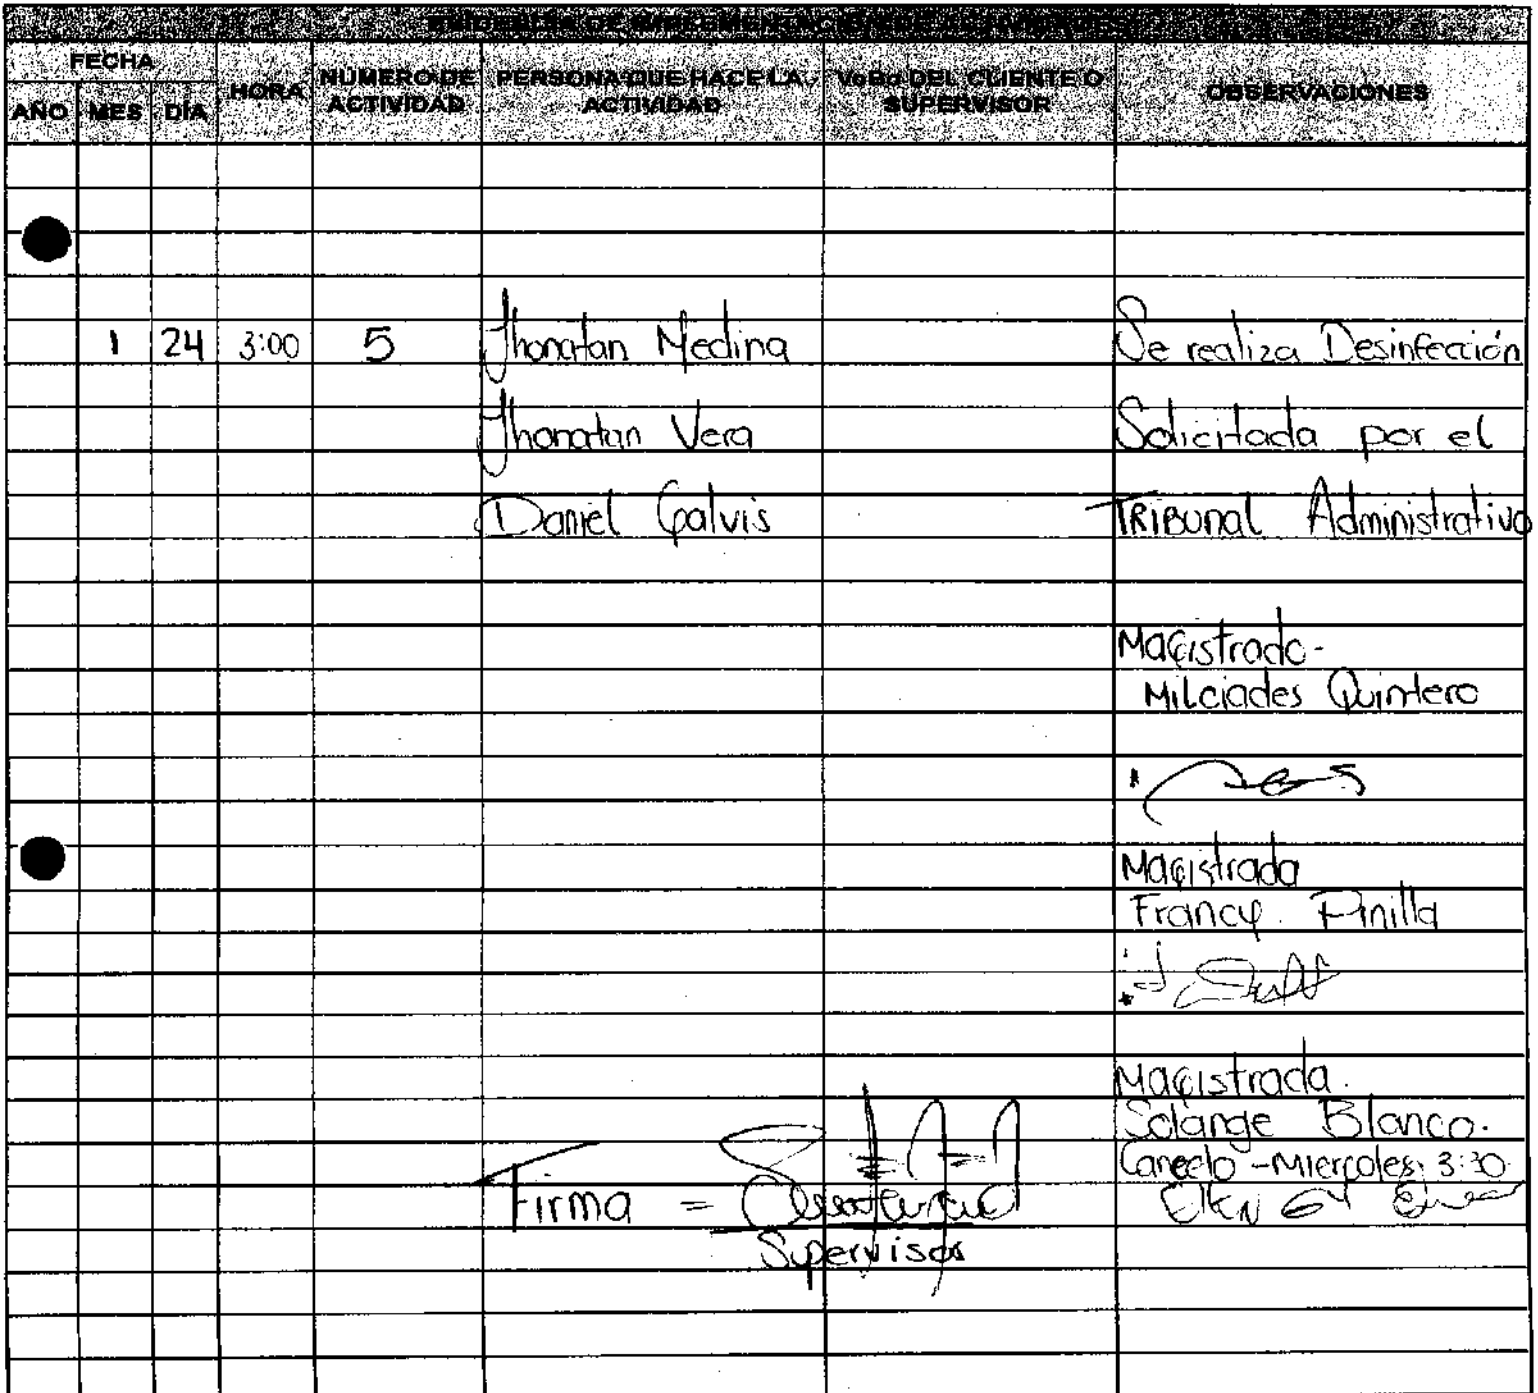 EVIDENCIA DE IMPLEMENTACIÓN DE ACTIVIDADES
FECHA
AÑO MES DÍA
HORA
NÚMERO DE
ACTIVIDAD
PERSONA QUE HACE LA
ACTIVIDAD
VoBo DEL CLIENTE O
SUPERVISOR
OBSERVACIONES
1 24 3:00 5 Jhonatan Medina Se realiza Desinfección
Jhonatan Vera Solicitada por el
Daniel Galvis TRIBUNAL Administrativo
Magistrado-
Milciades Quintero
Magistrada
Francy. Pinilla
Magistrada.
Solange Blanco.
Cancelo - Miercoles 3:30
Firma =
Supervisor